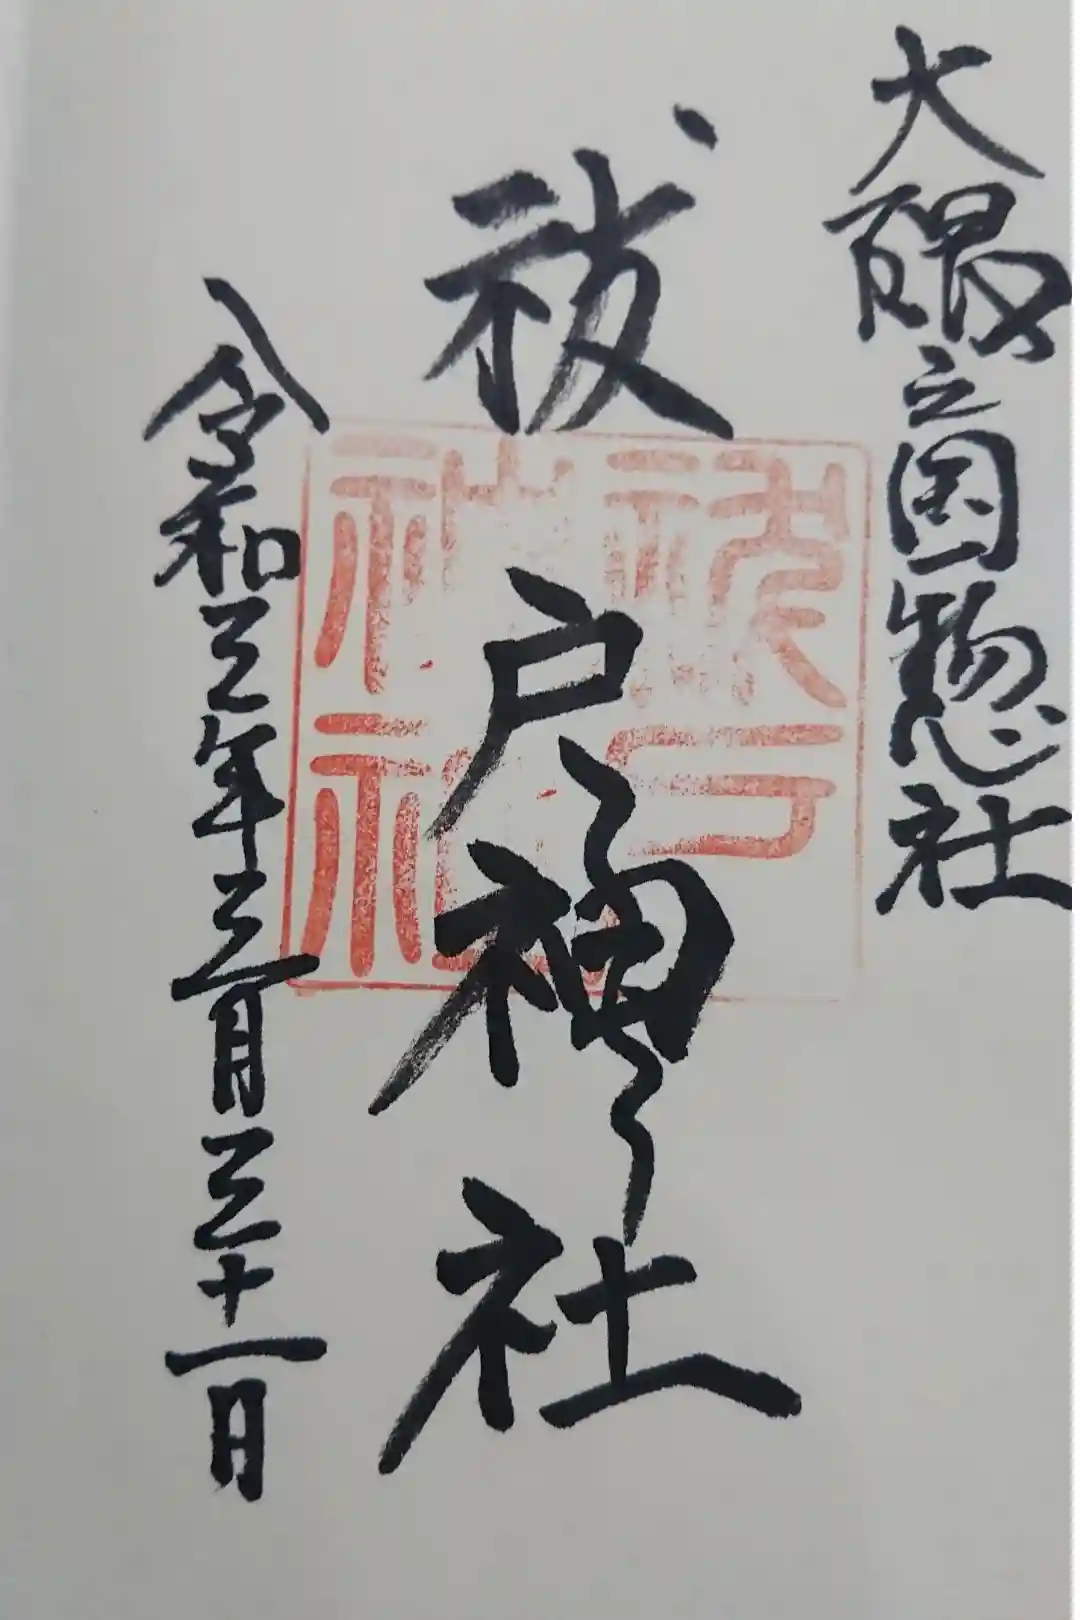 大隅之国惣社
祓戸神社
令和三年三月三十一日
祓戸神社